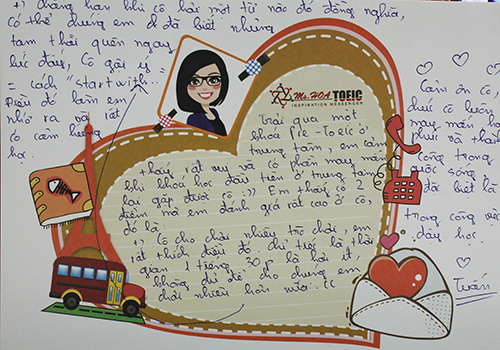 +) Chẳng hạn khi cô hỏi một từ nào đó đồng nghĩa,
Có thể chúng em đã biết nhưng
tạm thời quên ngay
lúc đấy, Cô gợi ý
= cách "start with...
Điều đó làm em
nhớ ra và rất
có cảm hứng
học.
Ms.HOA TOEIC
INSPIRATION MESSENGER
Trải qua một
khóa Pre-Toeic ở
trung tâm, em cảm
thấy rất vui và có phần may mắn
khi khóa học đầu tiên ở trung tâm
lại gặp được cô :)) Em thấy có 2
điểm mà em đánh giá rất cao ở cô,
đó là
+) Cô cho chơi nhiều trò chơi, em
rất thích điều đó chỉ tiếc là thời
gian 1 tiếng 30p là hơi ít,
không đủ để cho chúng em
chơi nhiều hơn nữa :((
Cảm ơn cô,
chúc cô luôn
may mắn hạnh
phúc và thành
công trong
cuộc sống,
đặc biệt là
trong công việc
dạy học.
Tuấn